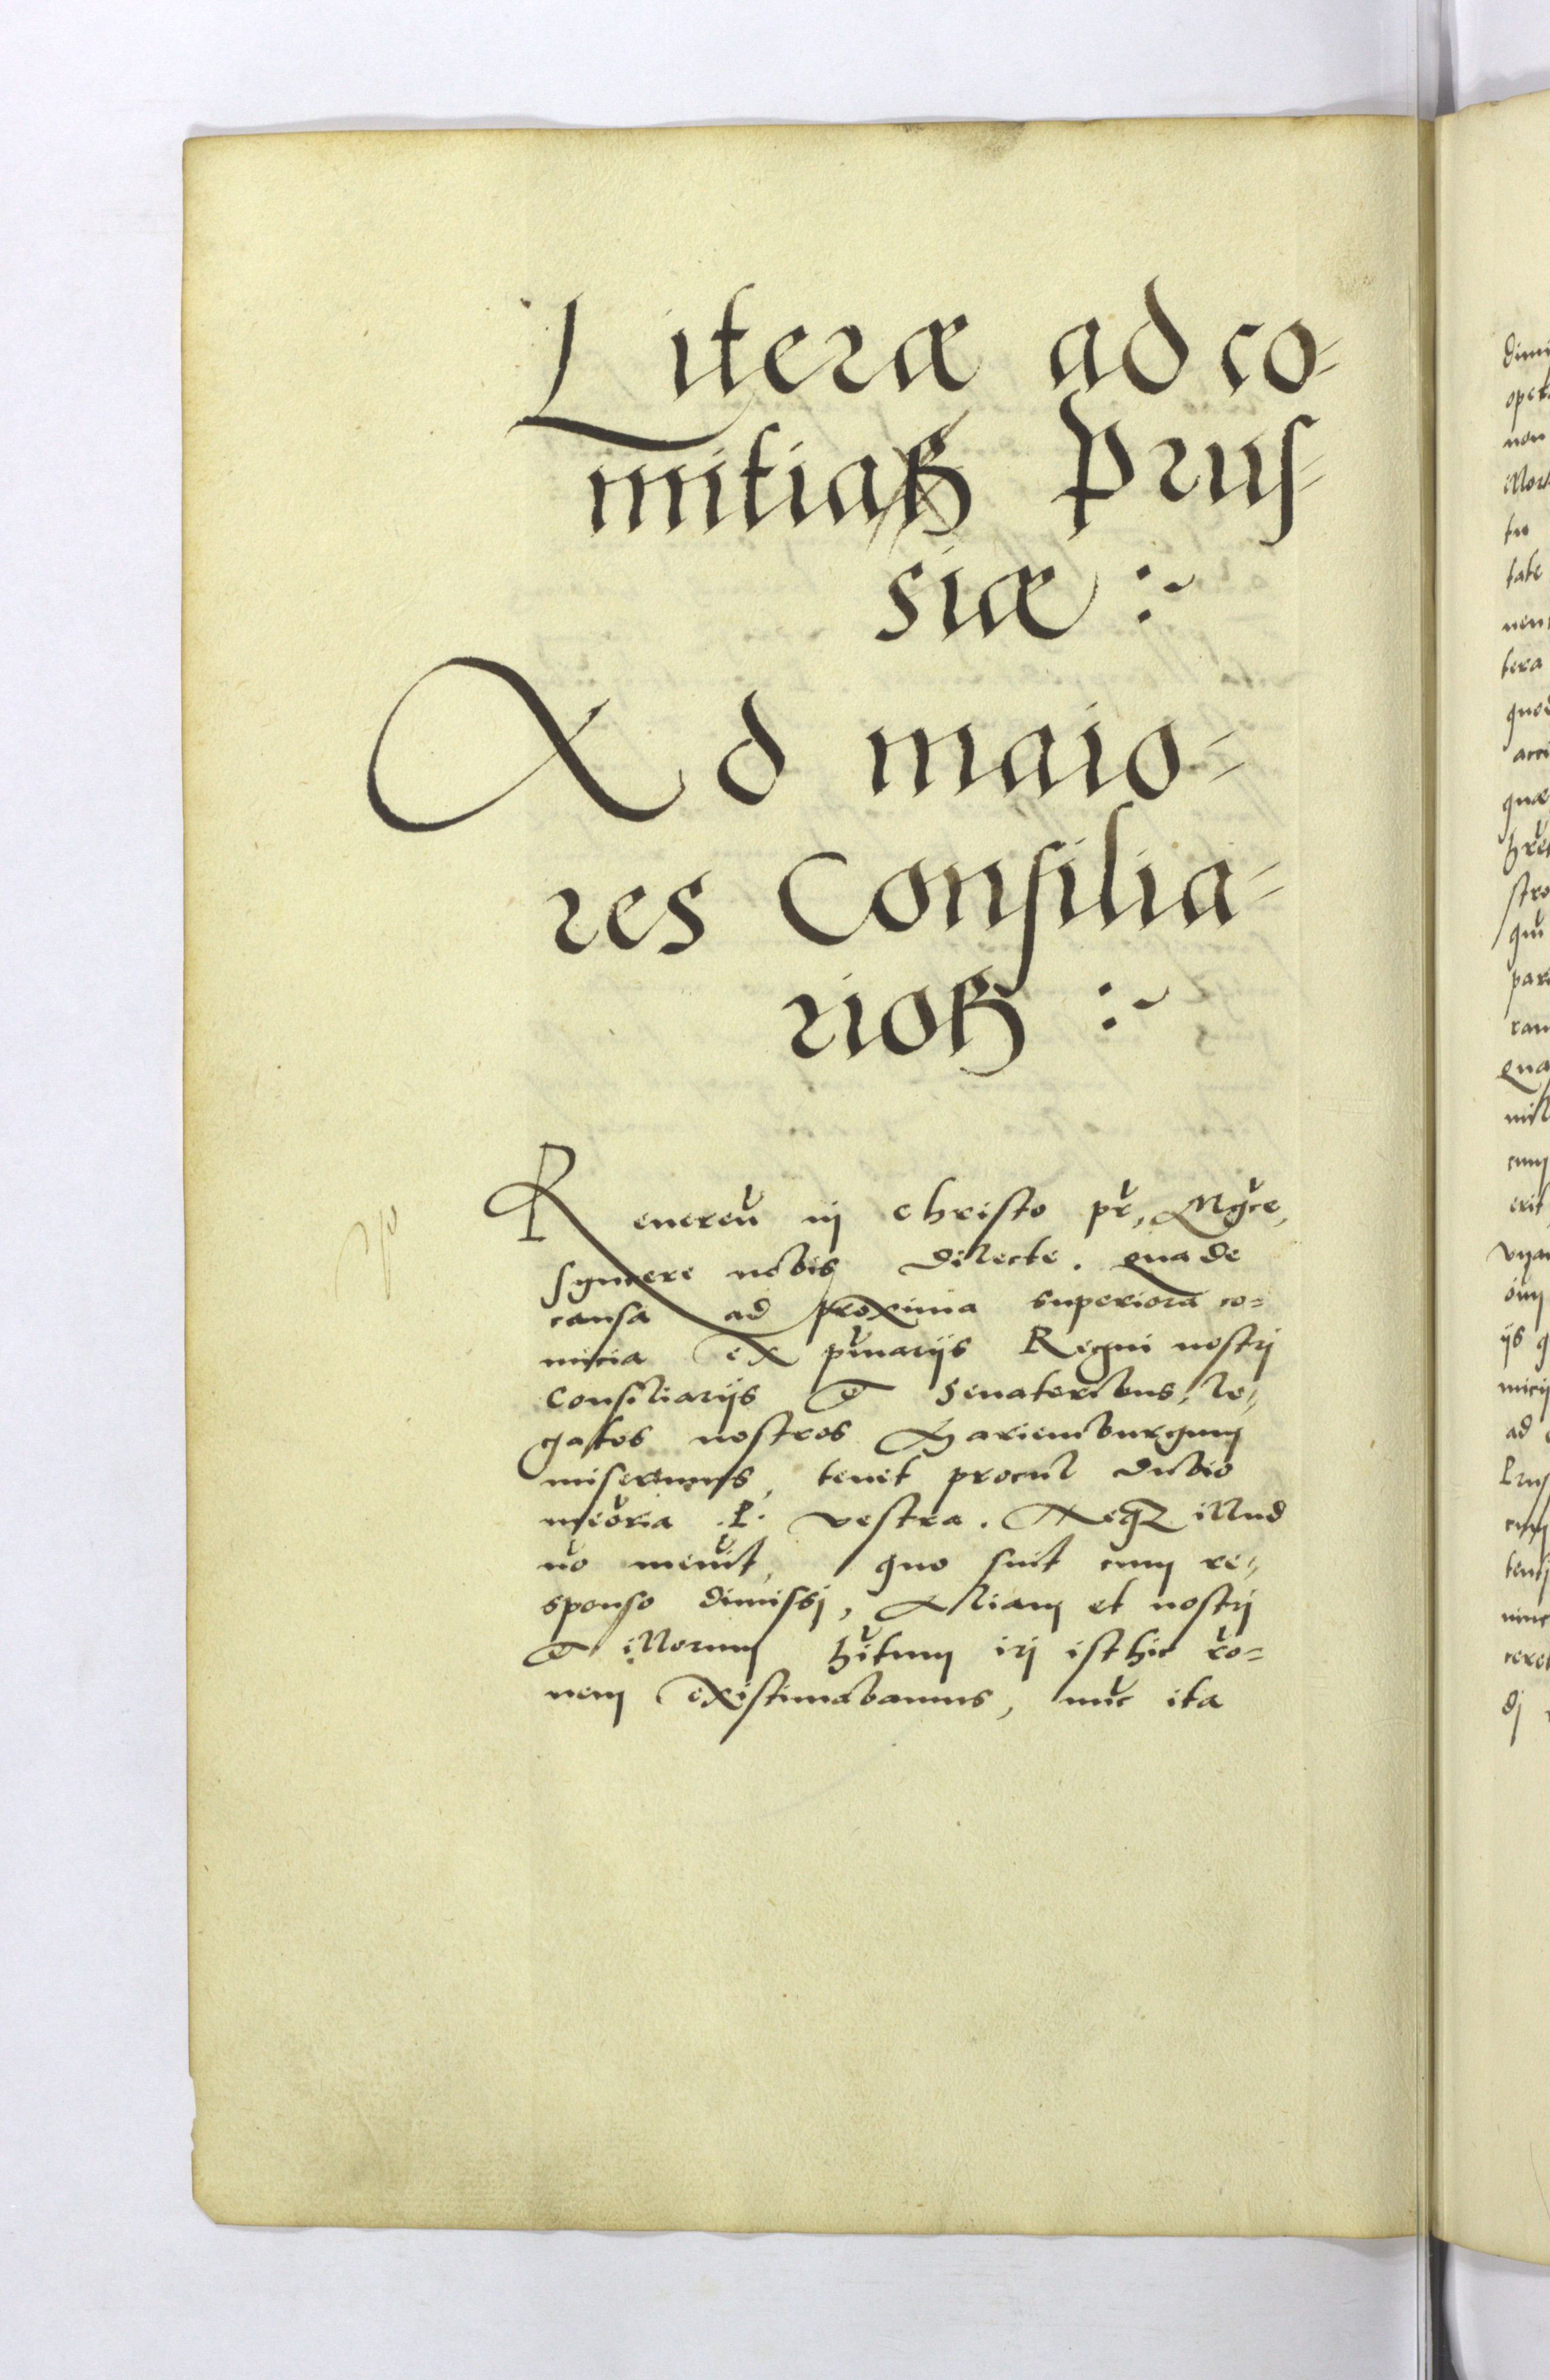 Literæ ad co=
mitiaꝝ Prus=
siæ :~
Ad maio=
res Consilia=
rioꝝ :~
Reuereñ in Christo pr̃, Mgce,
syncere nobis dilecte. Qua de
causa ad proxima superiora co=
micia ex pr̃marijs Regni nostri
Consiliarijs et Senatoribus, le=
gatos nostros Mariemburgum
miseramus, tenet procul dubio
meõria .P. vestra. Neqꝫ illud
nõ meuit, quo sint cum re=
sponso dimissi, Aliam et nostri
et illorum hĩtum iri isthic rõ=
nem existimabamus, nũc ita